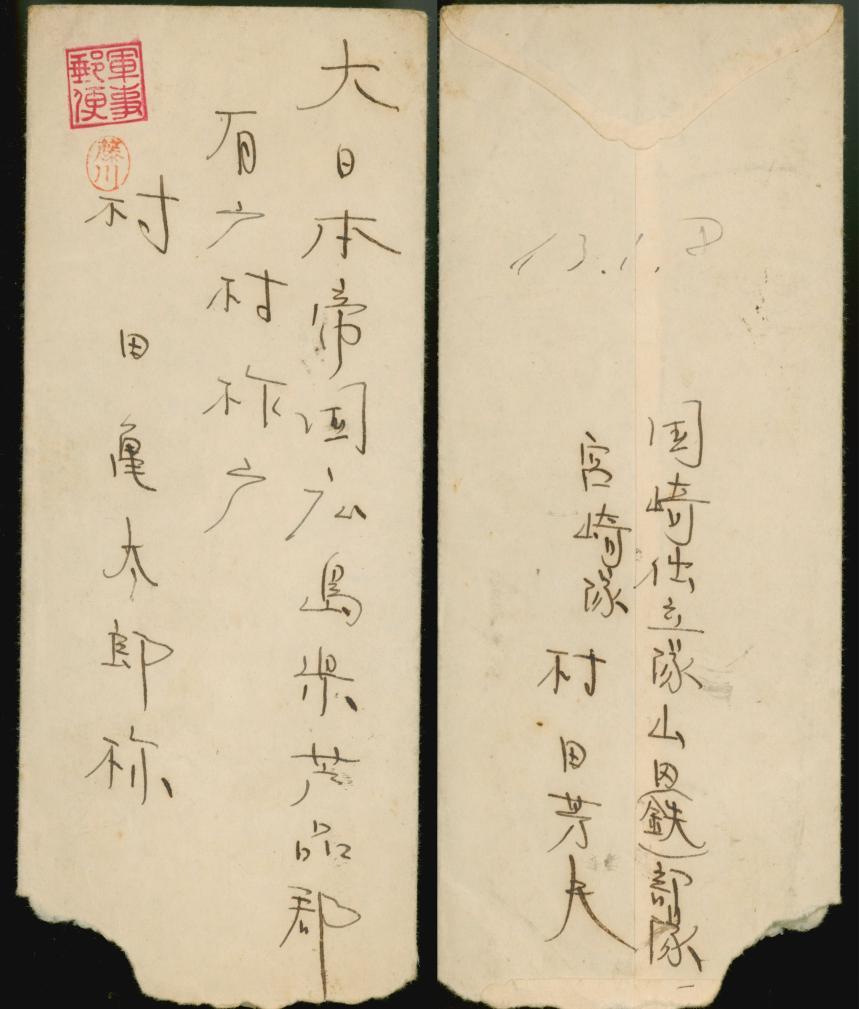 軍事
郵便
藤川
大日本帝国広島県芦品郡
有广村柞广
村田亀太郎様
13.1.8
国崎独立隊山田(鉄)部隊
宮崎隊
村田芳夫